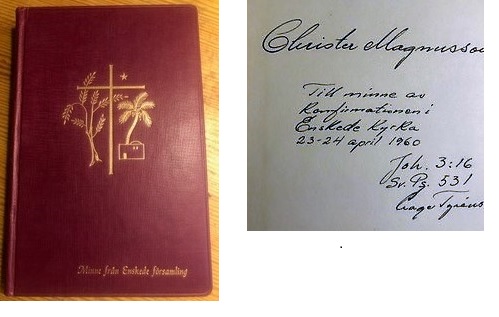 Minne från Enskede församling
Christer Magnusson
Till minne av
Konfirmationen i
Enskede Kyrka
23-24 april 1960
Joh. 3:16
Sv. Ps. 531